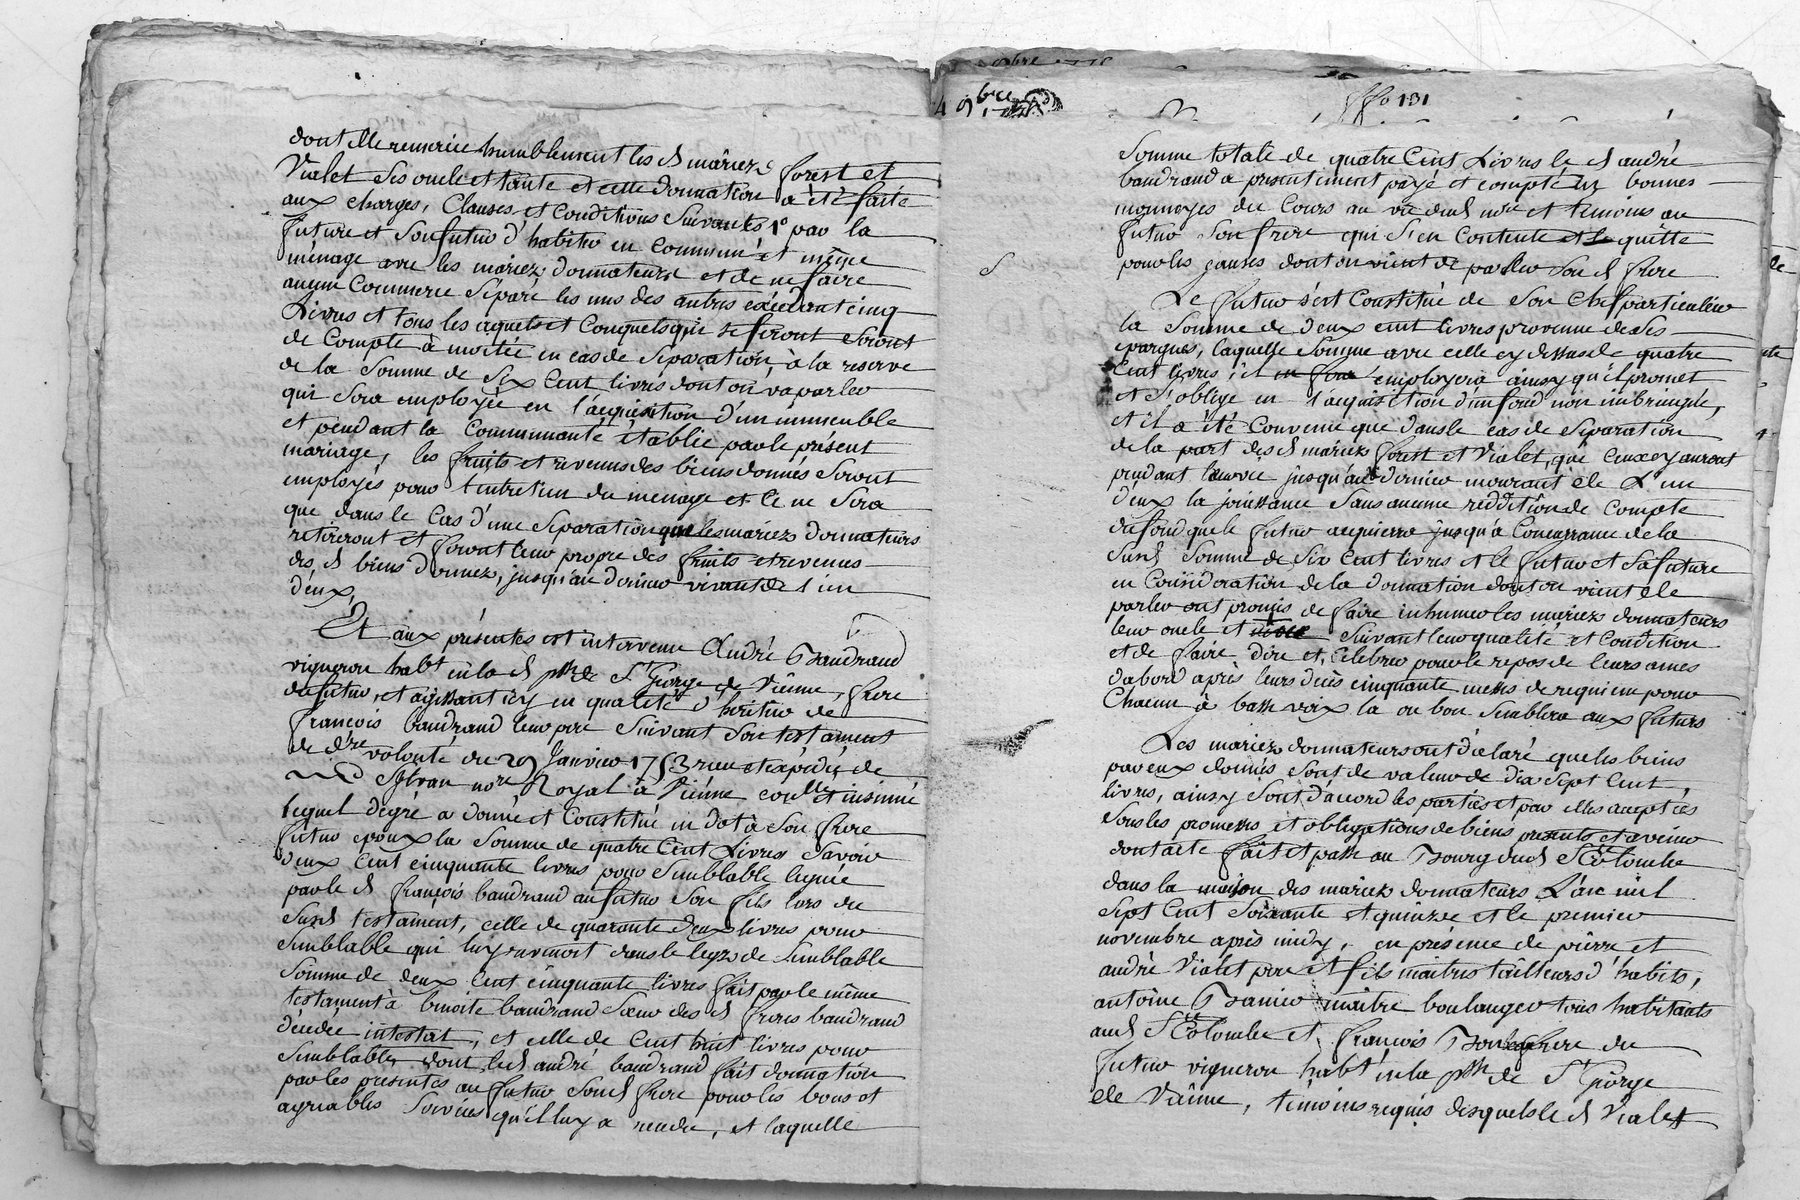 dont elle remercie humblement les d mâriez forest et
Vialet ses oncle et tante et cette donnation à été faite
aux charges, Clauses et Conditions Suivantes 1° par la
future et Son futur d'habiter en commun et même
ménage avec les mariez donnateurs et de ne faire
aucun Commerce Séparé les uns des autres excédant cinq
Livres et tous les aquets et Conquets qui se feront Seront
de Compte à moitée en cas de Séparation, à la reserve
de la Somme de Six Cent livres dont on va parler
qui Sera employée en l'acquisition d'un immeuble
et pendant la Communauté établie par le présent
mariage, les fruits et revenus des biens donnés Seront
employés pour l'entretien du menage et ce ne Sera
que dans le Cas d'une Séparation que les mariez donnateurs
retireront et feront leur propre des fruits et revenus
des d biens donnez, jusqu'au dernier vivant de l'un
d'eux,
Et aux présentes est intervenu André Baudrand
vigneron habt en la d psse de St George de Viênne, frere
du futur, et agissant icy en qualité d'héritier de
françois baudrand leur pere Suivant Son testament
de dre volonté du 29 Janvier 1753 reçu et expédié de
me nore Royal à Viénne collé et insinué
lequel degré a donné et Constitué en dot à Son frere
futur epoux la Somme de quatre Cent Livres Savoir
deux Cent cinquante livres pour Semblable leguée
par le d françois baudrand au futur Son fils lors du
Susd testament, celle de quarante deux livres pour
Semblable qui luy revenoit dans le legs de Semblable
Somme de deux Cent cinquante livres fait par le même
testament à benoite baudrand Soeur des d freres baudrand
décédée intestat, et celle de Cent huit livres pour
Semblable dont led andré baudrand fait donnation
par les presentes au futur Son d frere pour les bons et
agréables Services qu'il luy a rendu, et laquelle
4 9bre
ffo 131
Somme totale de quatre Cent Livres le d andré
baudrand a presentement payé et compté en bonnes
monnoyes du Cours au vu dud nore et temoins au
futur Son frere qui S'en Contente et quitte
pour les causes dont on vient de parler Son d frere
Le futur s'est Constitué de Son Chef particulier
la Somme de deux cent livres provenue de Ses
epargnes, laquelle Somme avec celle cy dessus de quatre
Cent livres, il employera ainsy qu'il promet
et S'oblige en l'acquisition d'un fond non imbringué,
et il a été Convenu que dans le cas de Séparation
de la part des d mariez forest et Vialet, que Ceux cy auront
pendant leur vie jusqu'au dernier mourant de L'un
d'eux la jouissance Sans aucune reddition de Compte
du fond que le futur acquierra jusqu'à Concurrance de la
Susd Somme de Six Cent livres et le futur et Sa future
en Considération de la donnation dont on vient de
parler ont promis de faire inhumer les mariez donnateurs
leur oncle et Suivant leur qualité et Condition
et de faire dire et, Celebrer pour le repos de leurs ames
dabord après leurs décès cinquante messes de requiem pour
Chacun à basse voix la ou bon Semblera aux futurs
Les mariez donnateurs ont déclaré que les biens
par eux donnés Sont de valeur de dix Sept Cent
livres, ainsy Sont d'accord les parties et par elles acceptées
Sous les promesses et obligations de biens presents et avenir
dont acte fait et passé au Bourg dud Ste Colombe
dans la maison des mariez donnateurs. L'an mil
Sept Cent Soixante et quinze et le premier
novembre après midy, en présence de pierre et
andré Vialet pere et fils maitres tailleurs d'habits,
antoine Banier maître boulanger tous habitants
aud Ste Colombe et françois frere du
futur vigneron habt en la pssse de St George
de Viênne, témoins requis desquels le d Vialet